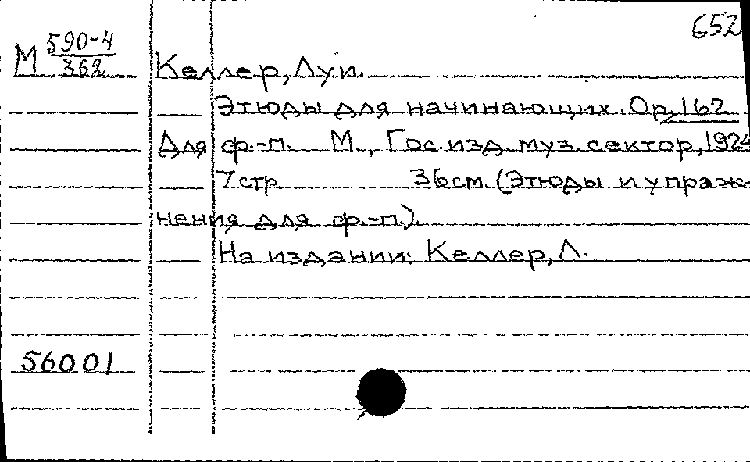 652
М 590-4
362
Келлер, Луи.
Этюды для начинающих. Op. 162
Для ф.-п. М., Гос. изд. муз. сектор, 1924
7 стр 36 см. (Этюды и упраж-
нения для ф.-п.).
На издании: Келлер, Л.
56001